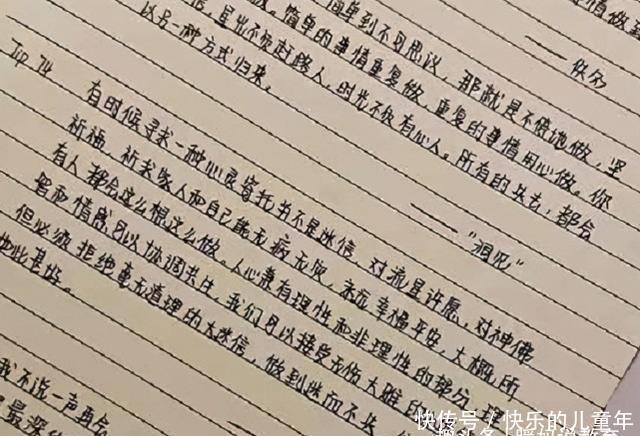 情做到
简单到不可思议，那就是不停地做，坚
做。简单的事情重复做，重复的事情用心做。你
信，星光不负赶路人，时光不负有心人。所有的失去，都会
以另一种方式归来。
——佚名
Top 74
有时候寻求一种心灵寄托并不是迷信，对流星许愿，对神佛
祈福，祈求家人和自己能无病无灾，永远幸福平安，大概所
有人都会这么想这么做。人心兼有理性和非理性的部分，理
智和情感可以协调共生，我们可以接受无伤大雅的
但必须拒绝毫无道理的大迷信，做到迷而不失
—— "洞见"
我不说一声再会
最深
快传号／快乐的儿童年